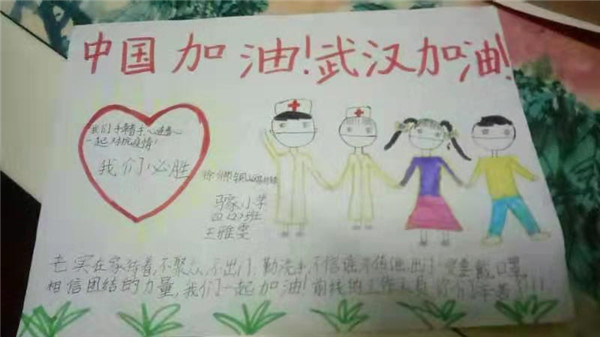 中国加油!武汉加油!
我们手牵手心连心
一起对抗疫情!
我们必胜
马家小学
王雅雯
老实在家待着,不聚众,不出门,勤洗手,不信谣,不传谣,出门一定要戴口罩,
相信团结的力量,我们一起加油!前线的工作人员你们辛苦了!!!